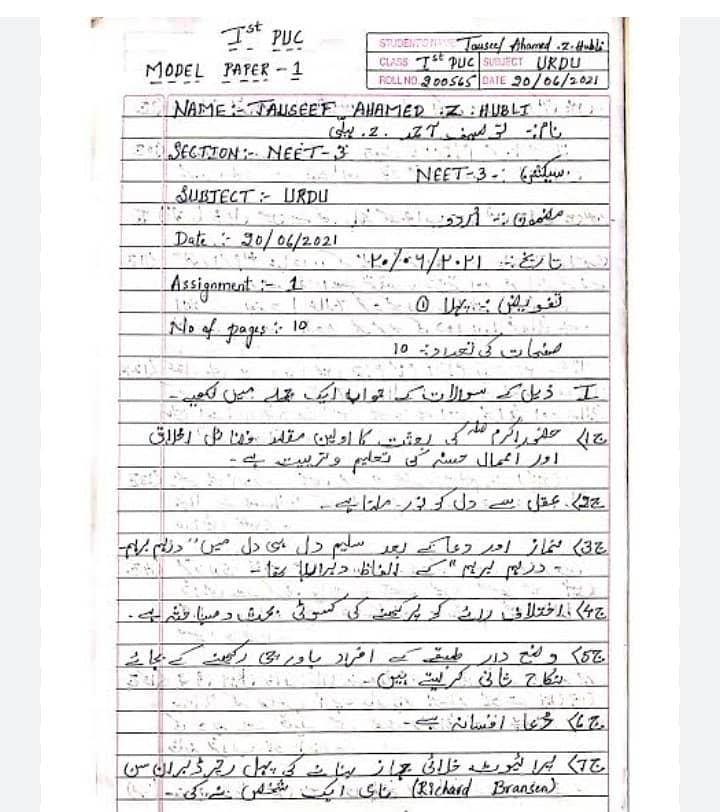 Ist PUC
MODEL PAPER - 1
STUDENT'S NAME Tauseef Ahamed .Z. Hubli
CLASS Ist PUC SUBJECT URDU
ROLL NO. 200565 DATE 20/06/2021
NAME :- TAUSEEF AHAMED :Z: HUBLI
نام:- توصیف احمد .z. ہبلی
SECTION :- NEET-3
سیکشن :- NEET-3
SUBJECT :- URDU
مضمون :- اُردو
Date :- 20/06/2021
تاریخ :- ۲۰/۰۶/۲۰۲۱
Assignment :- 1
تفویض :- پہلا ①
No of pages :- 10
صفحات کی تعداد :- 10
I ذیل کے سوالات کے جواب ایک جملے میں لکھیے -
ج1〉 حضور اکرم ﷺ کی بعثت کا اولین مقصد فضائل اخلاق
اور اعمال حسنہ کی تعلیم و تربیت ہے -
ج2〉 عقل سے دل کو نور ملتا ہے -
ج3〉 نماز اور دعا کے بعد سلیم دل ہی دل میں "درہم برہم -
- درہم برہم" کے الفاظ دہرا رہا تھا -
ج4〉 اختلاف رائے کو پرکھنے کی کسوٹی بحث و مباحثہ ہے -
ج5〉 وضع دار طبقے کے افراد باورچی رکھنے کے بجائے
نکاح ثانی کر لیتے ہیں -
ج6〉 دُعا افسانہ ہے -
ج7〉 پرائیوٹ خلائی جہاز بنانے کی پہل رچرڈ بران سن
(Richard Bransen) نامی ایک شخص نے کی -